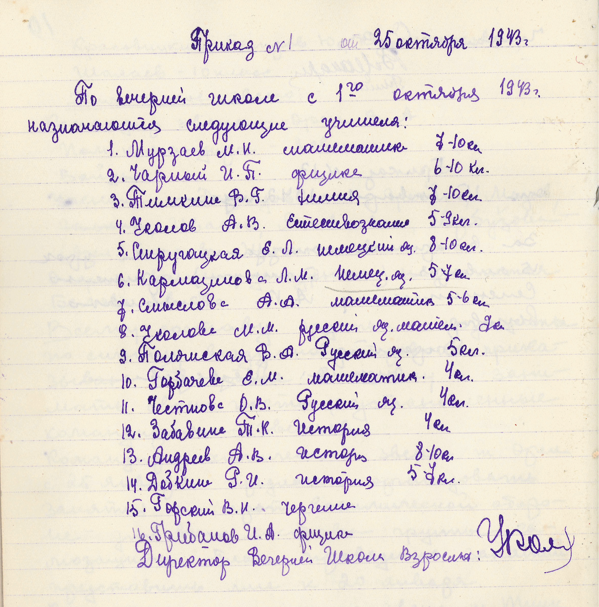 Приказ №1 от 25 октября 1943 г.
По вечерней школе с 1го октября 1943 г.
назначаются следующие учителя:
1. Мурзаев М.И. математика 7-10 кл
2. Чарный И.П. физика 6-10 кл.
3. В.Г. химия 7-10 кл.
4. Уколов А.В. Естествознание 5-9 кл.
5. Стругацкая Е.Л. немецкий яз. 8-10 кл.
6. Кармазинова Л.М. немец. яз. 5-7 кл
7. Смыслова А.А. математика 5-6 кл
8. Уколова М.М. русский яз. матем. кл
9. В.А. Русский яз. 5 кл.
10. Горбачева Е.М. математик. 4 кл.
11. Честнова О.В. Русский яз. 4 кл.
12. Т.К. история 4 кл
13. Андреев А.В. истори 8-10 кл
14. Добкин Р.И. история 5-7 кл.
15. Горский В.Н. черчение
16. Грибанов И.А. физика
Директор Вечерней Школы Взрослых: Укол